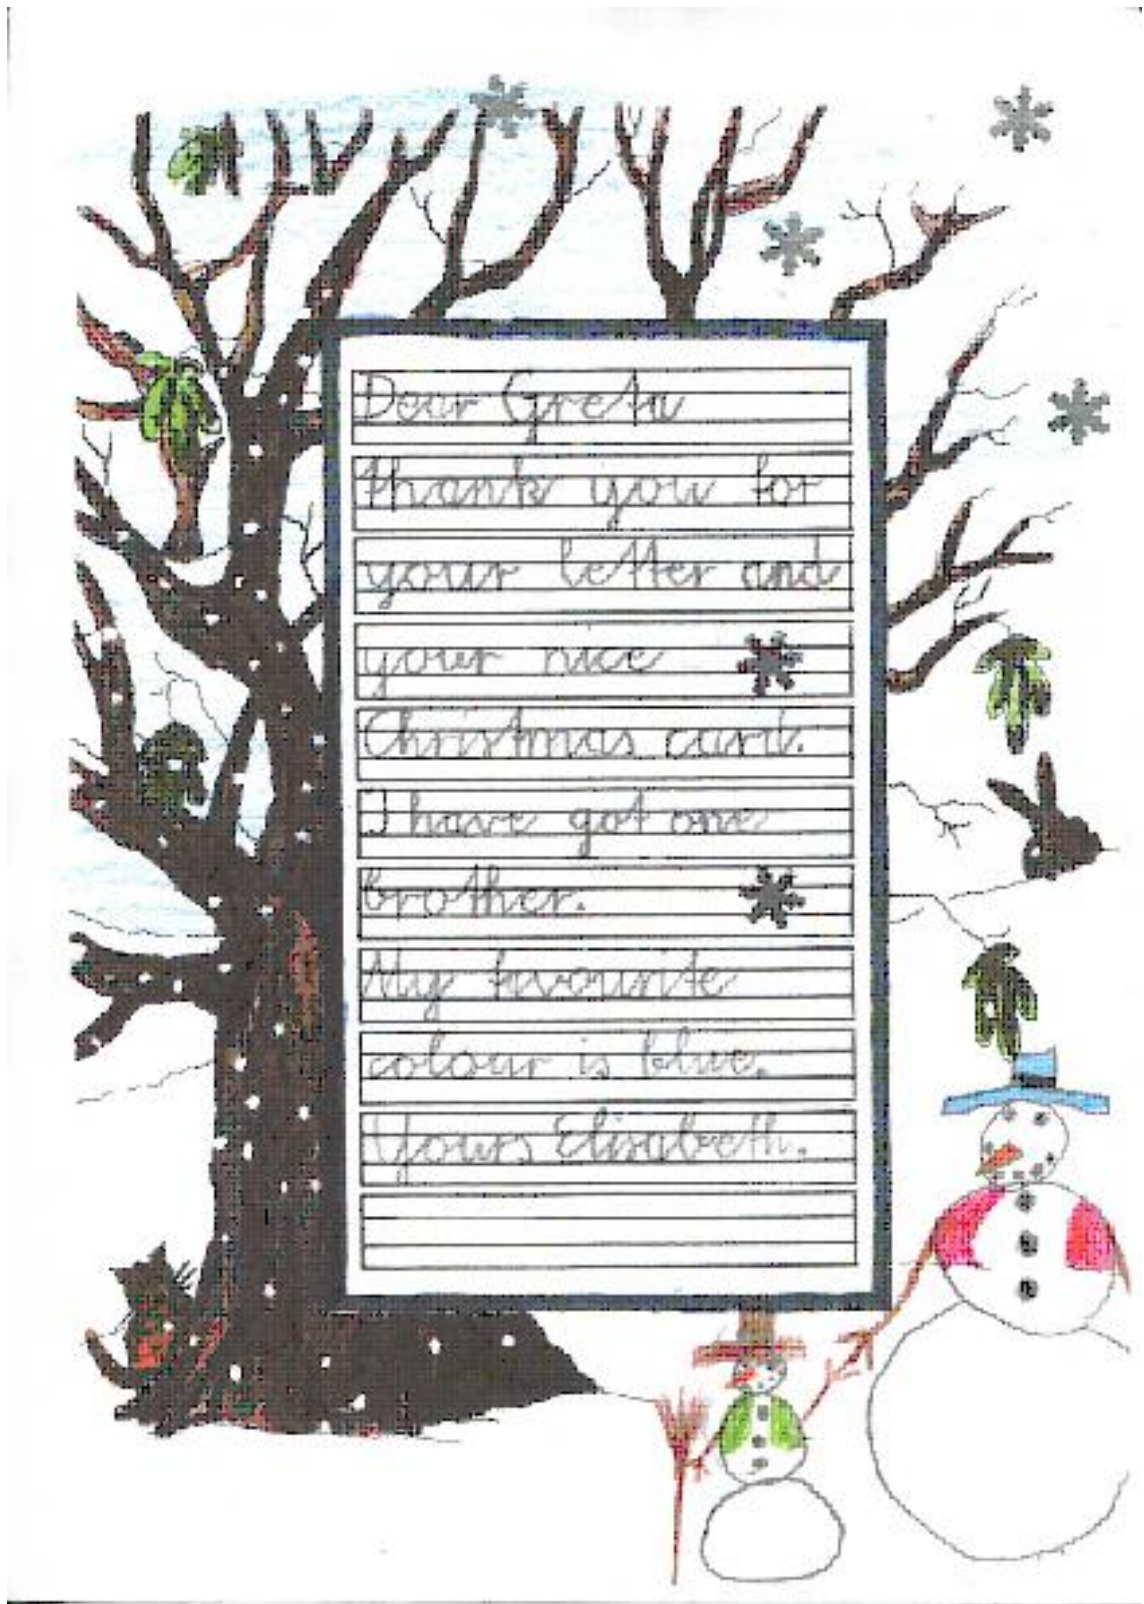 Dear Greta
thank you for
your letter and
your nice
Christmas card.
I have got one
brother.
My favourite
colour is blue.
Yours Elisabeth.